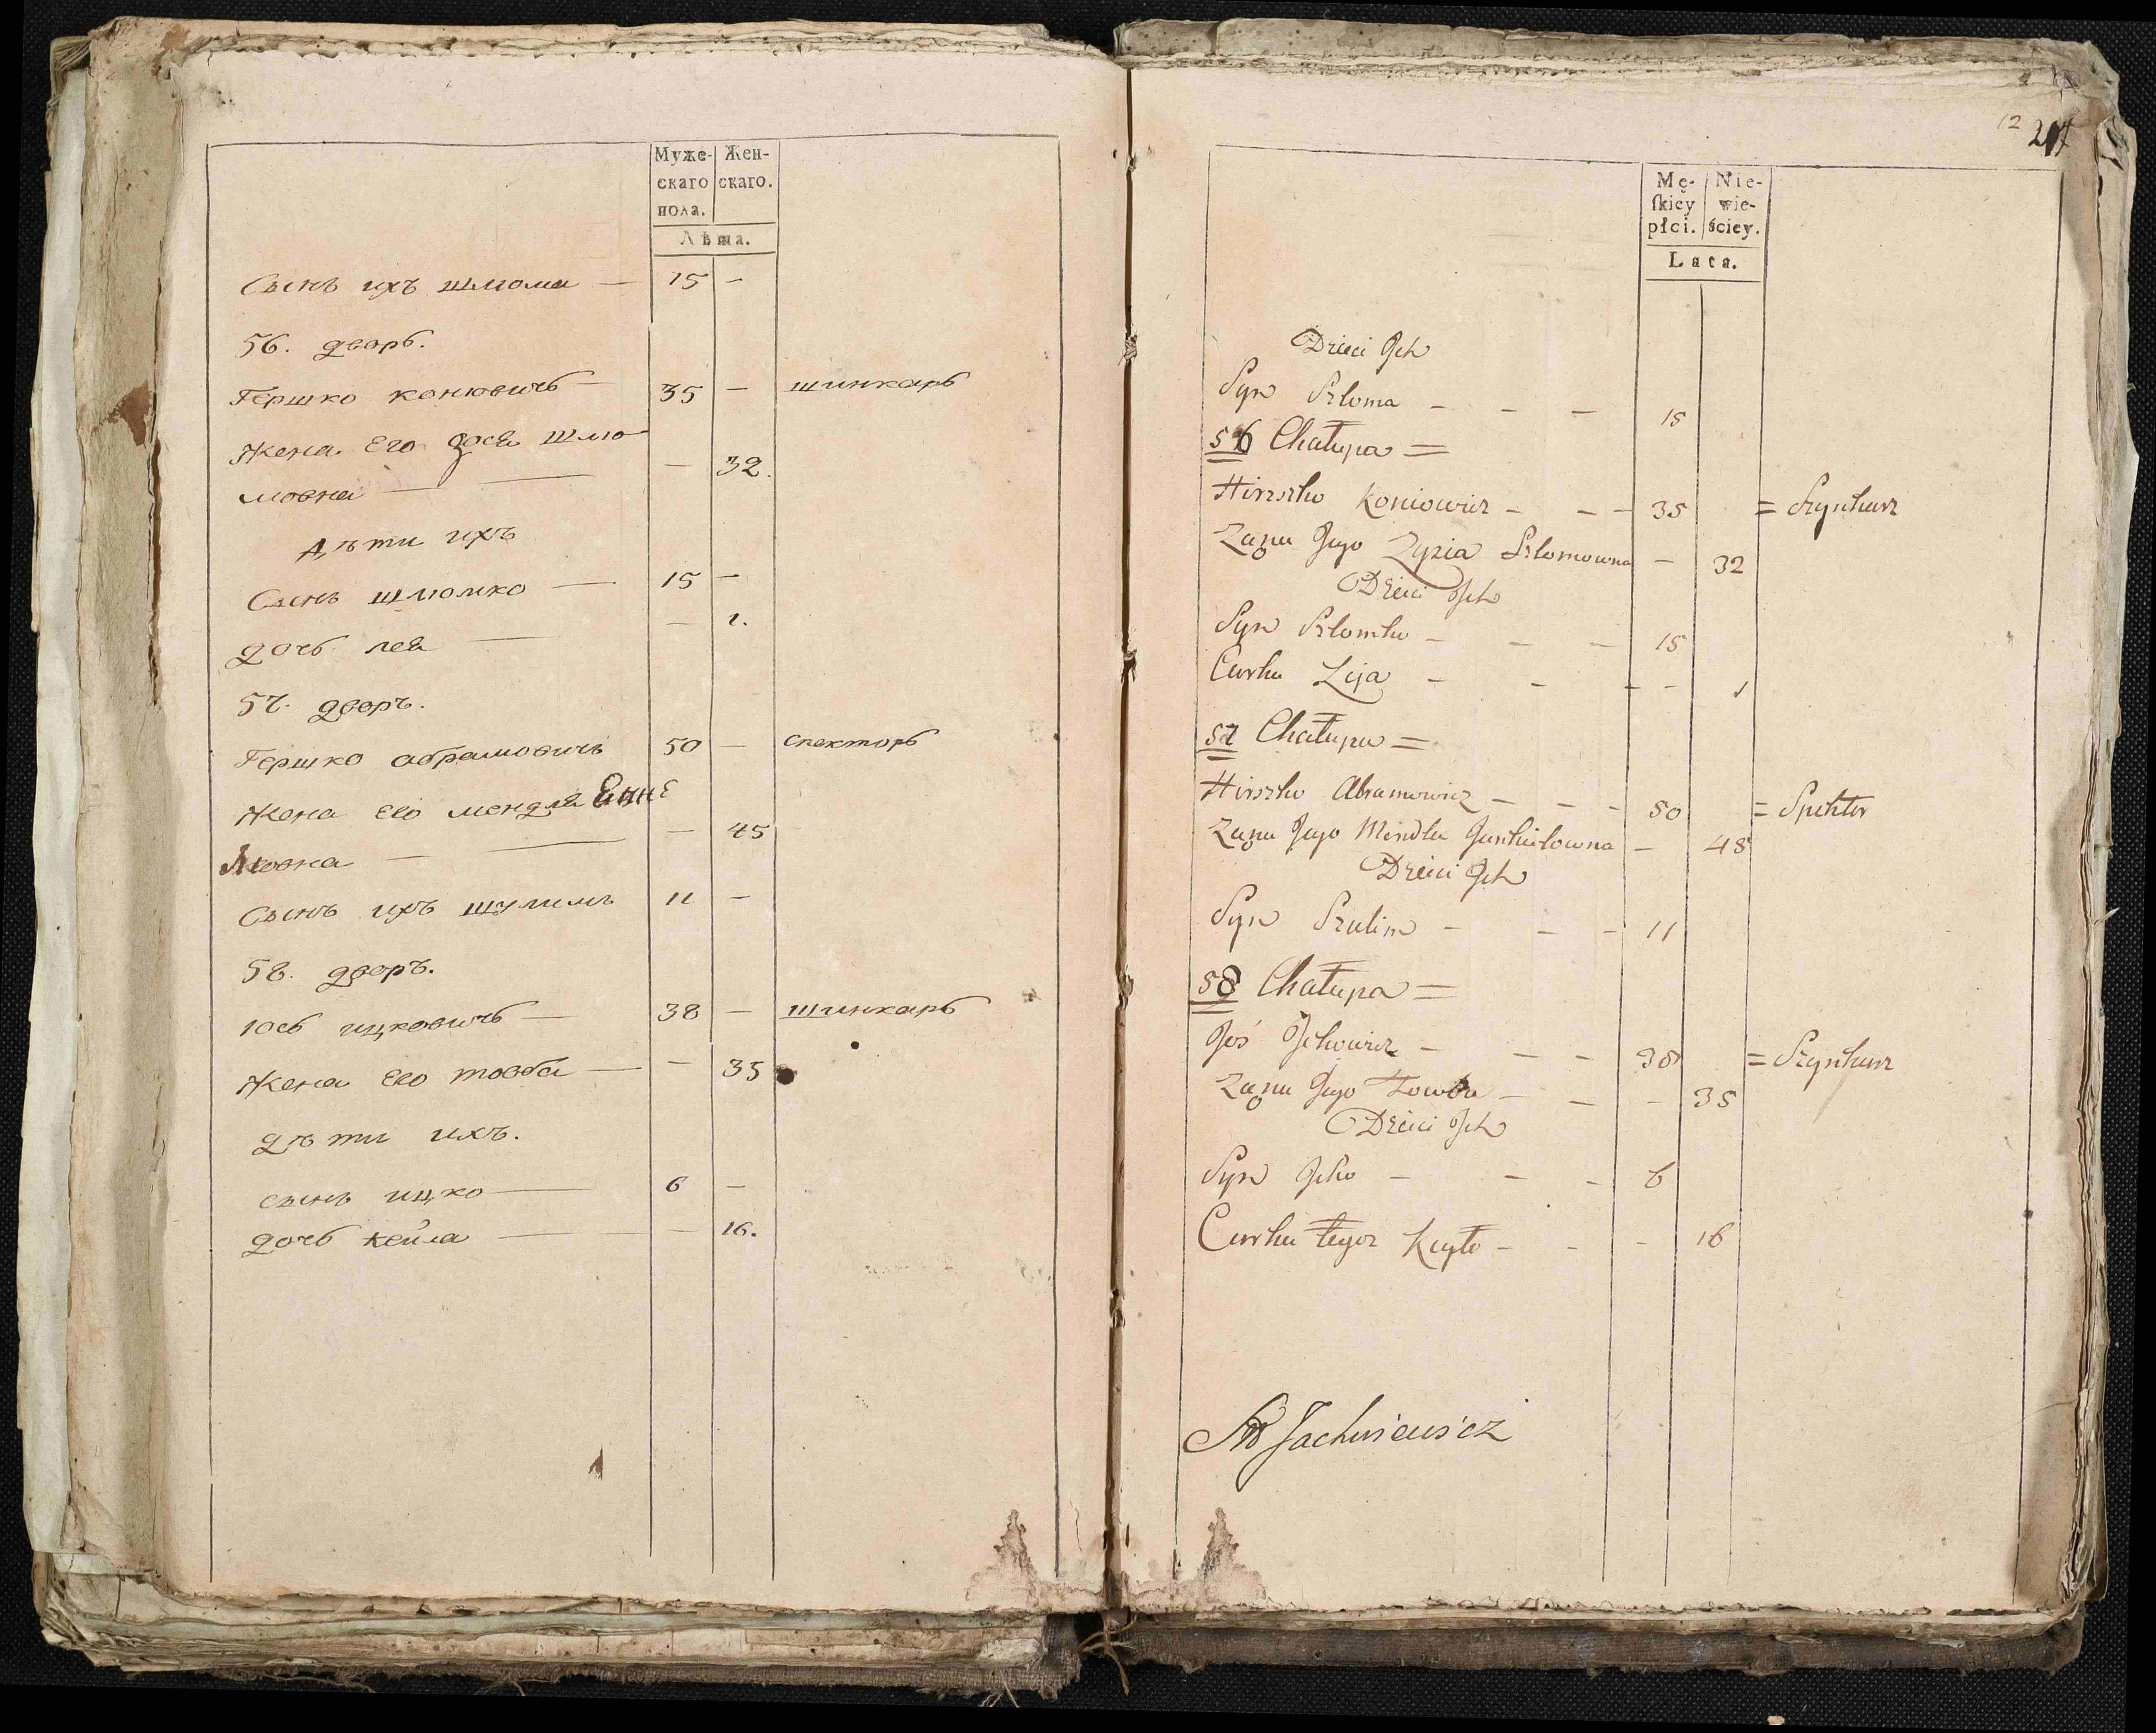 Муже- Жен-
скаго скаго.
пола.
Лѣта.
Сынъ ихъ шлюма — 15 -
56. дворъ.
Гершко конювичь — 35 - шинкарь
Жена Его Зося Шлю-
мовна — - 32.
Дѣти ихъ
Сынъ шлюмко — 15 -
дочь лея — - 1.
57. дворъ.
Гершко абрамовичь 50 - спекторъ
Жена его мендля
— - 45
Сынъ ихъ шулимъ 11 -
58. дворъ.
юсь ицковичь — 38 - шинкарь
Жена его товба — - 35
дѣти ихъ.
сынъ ицко — 6 -
дочь кейла — - 16.
12
Mę- Nie-
ſkiey wie-
płci. ściey.
Lata.
Dzieci Ich
Syn Szloma - - - 15
56 Chałupa =
Hirszko Koniowicz - - - 35 = Szynkarz
Zana Jego Zyzia Szlomowna - 32
Dzieci Ich
Syn Szlomko - - - 15
Curka Lija - - - - 1
57 Chałupa =
Hirszko Abramowicz - - - 50 = Spektor
Zana Jego Mendla - 48
Dzieci Ich
Syn Szulim - - - 11
58 Chałupa =
Joś Ickowicz - - - 38 = Szynkarz
Zana Jego Towba - - - 35
Dzieci Ich
Syn Icko - - - 6
Curka tegoz Kayła - - - 16